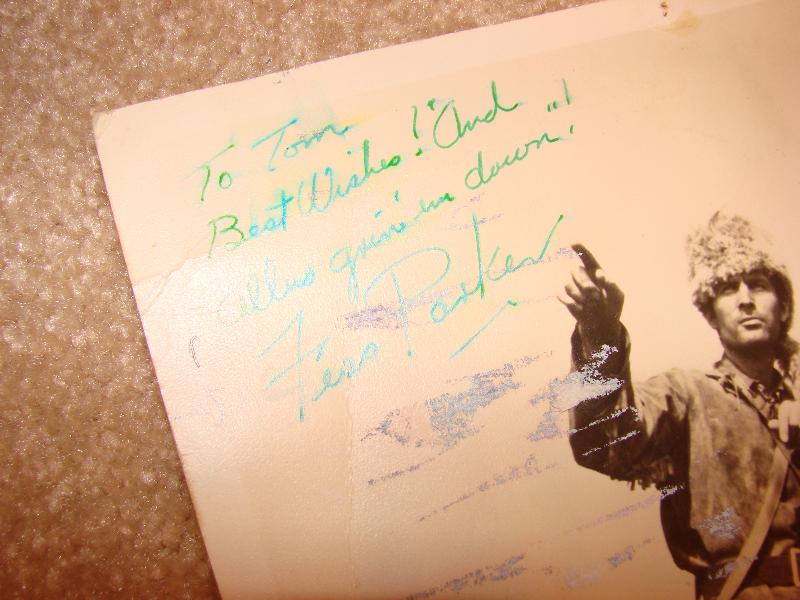 To Tom
Best Wishes! "And
allus grin 'em down"!
Fess Parker